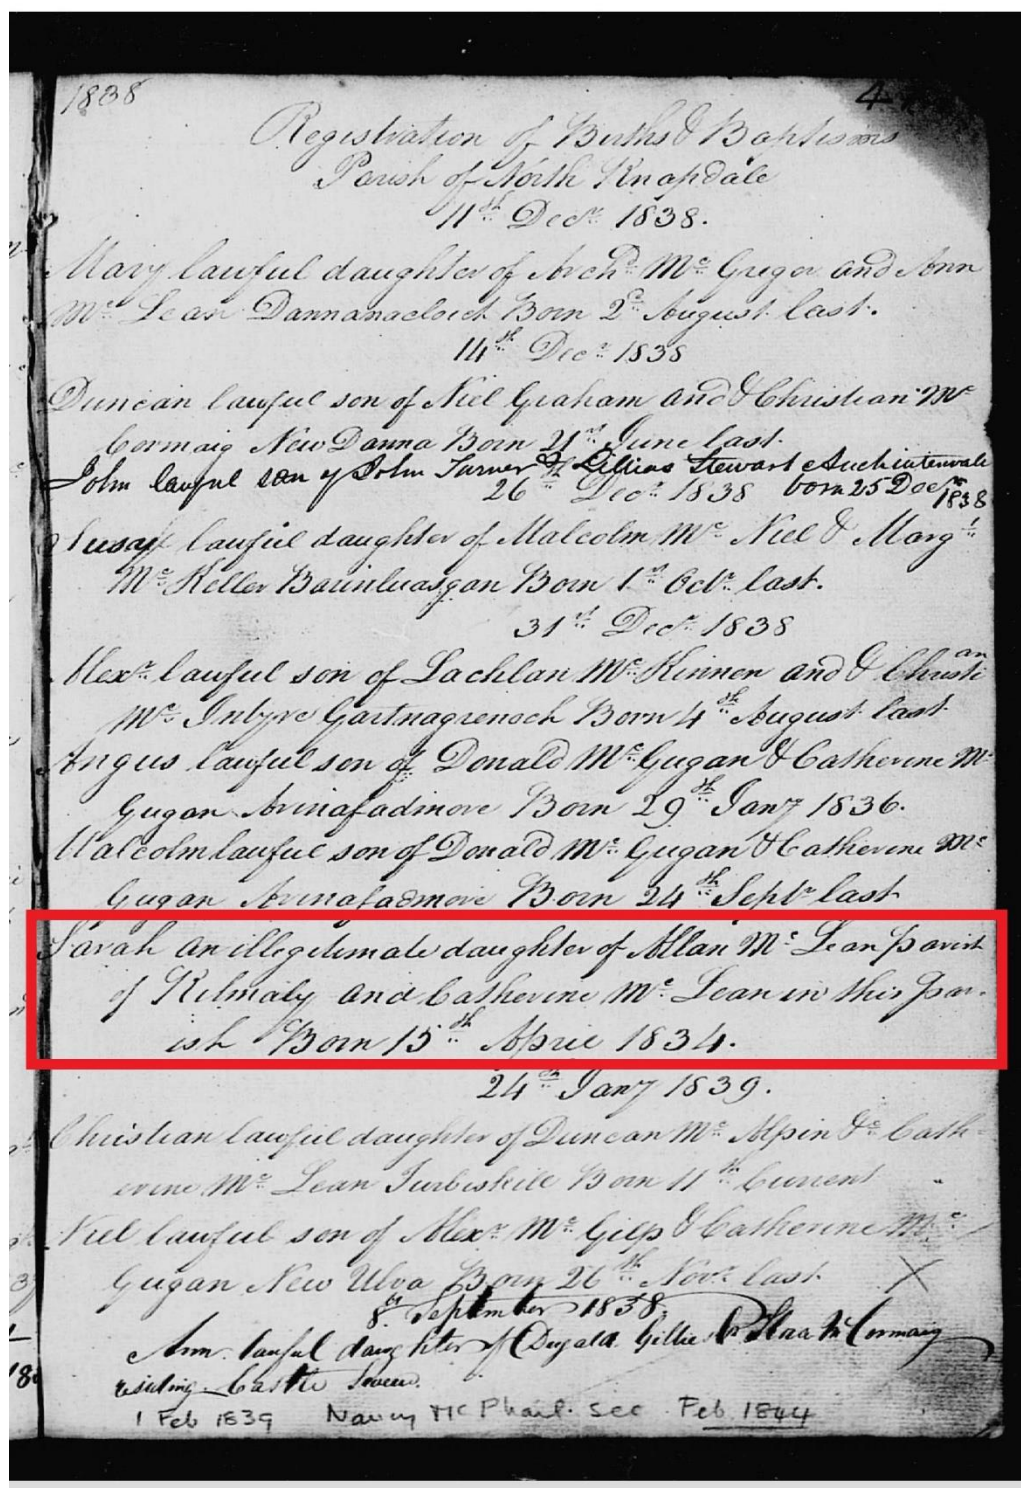 1838
4
Registration of Births & Baptisms
Parish of North Knapdale
11th Decr 1838.
Mary lawful daughter of Archd Mc Gregor and Ann
Mc Lean Dannanacloich Born 2d August last.
14th Decr 1838
Duncan lawful son of Niel Graham and & Christian Mc
Cormaig New Danna Born 21st June last.
John lawful son of John Turner & Lillias Stewart Auchintenvale
26th Decr 1838 born 25 Decr 1838
lawful daughter of Malcolm Mc Niel & Margt
Mc Keller Barinluasgan Born 1st Octr last.
31st Decr 1838
Alexr lawful son of Lachlan Mc Kinnon and & Christian
Mc Intyre Gartnagrenoch Born 4th August last
Angus lawful son of Donald Mc Gugan & Catherine Mc
Gugan Arinafadmore Born 29th Jany 1836.
Malcolm lawful son of Donald Mc Gugan & Catherine Mc
Gugan Arinafadmore Born 24th Septr last
Sarah an illegitimate daughter of Allan Mc Lean parish
of Kilmaly and Catherine Mc Lean in this Par-
ish Born 15th April 1834.
24th Jany 1839.
Christian lawful daughter of Duncan Mc Alpin & Cath-
erine Mc Lean Turbiskill Born 11th Current
Niel lawful son of Alexr Mc Gilp & Catherine Mc
Gugan New Ulva Born 26th Novr last. X
8th September 1838.
Ann lawful daughter of Dugald Gillies & Flora McCormaig
residing Castle Sween.
1 Feb 1839 Nancy McPhail. see Feb 1844